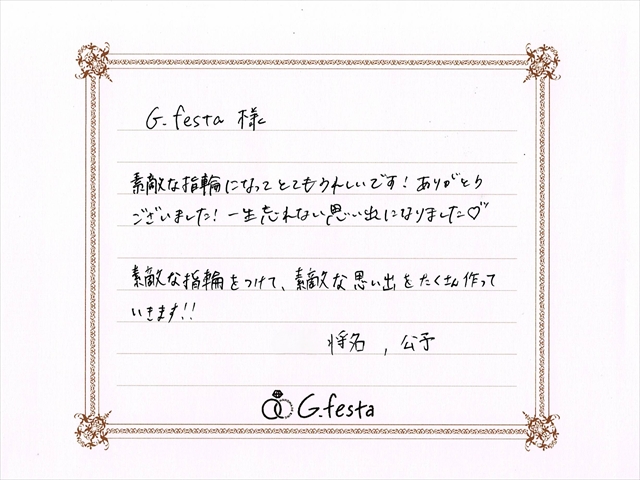 G.festa 様
素敵な指輪になってとてもうれしいです！ありがとう
ございました！一生忘れない思い出になりました♡
素敵な指輪をつけて、素敵な思い出をたくさん作って
いきます!!
将名，公子
G.festa